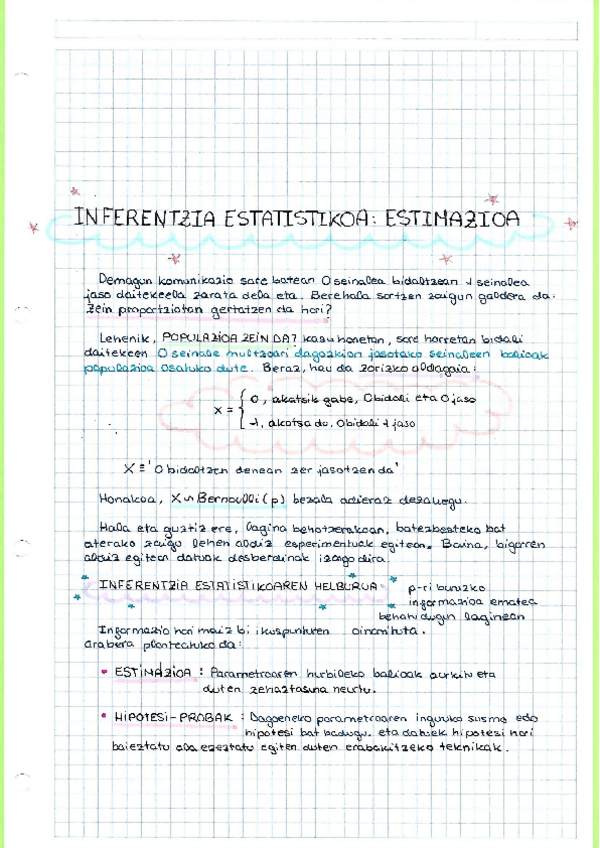 INFERENTZIA ESTATISTIKOA: ESTIMAZIOA
Demagun komunikazio sare batean 0 seinalea bidaltzean 1 seinalea
jaso daitekeela zarata dela eta. Berehala sortzen zaigun galdera da:
zein proportziotan gertatzen da hori?
Lehenik, POPULAZIOA ZEIN DA? kasu honetan, sare horretan bidali
daitekeen 0 seinale multzoari dagozkion jasotako seinaleen balioak
populazioa osatuko dute. Beraz, hau da zorizko aldagaia:
x = { 0, akatsik gabe, 0 bidali eta 0 jaso
1, akatsa du. 0 bidali 1 jaso
X ≡ '0 bidaltzen denean zer jasotzen da'
Honakoa, X ∽ Bernoulli(p) bezala adieraz dezakegu.
Hala eta guztiz ere, lagina behatzerakoan, batezbesteko bat
aterako zaigu lehen aldiz esperimentuak egitean. Baina, bigarren
aldiz egitean datuak desberdinak izango dira.
INFERENTZIA ESTATISTIKOAREN HELBURUA: p-ri buruzko
informazioa ematea
behatu dugun laginean
oinarrituta.
Informazio hori maiz bi ikuspunturen
arabera planteatuko da:
• ESTIMAZIOA : Parametroaren hurbileko balioak aurkitu eta
duten zehaztasuna neurtu.
• HIPOTESI-PROBAK : Dagoeneko parametroaren inguruko susmo edo
hipotesi bat badugu. eta datuek hipotesi hori
baieztatu ala ezeztatu egiten duten erabakitzeko teknikak.